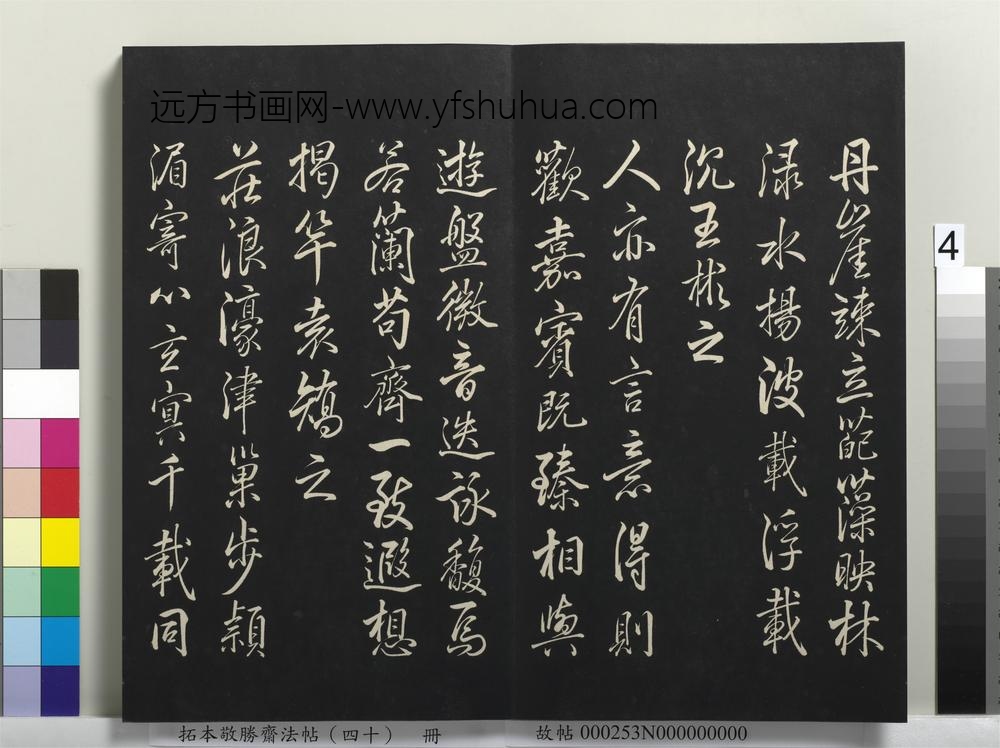 远方书画网-www.yfshuhua.com
丹崖竦立葩藻映林
渌水揚波載浮載
沉王彬之
人亦有言意得則
歡嘉賓既臻相與
遊盤微音迭詠馥焉
若蘭苟齊一致遐想
揭竿袁矯之
莊浪濠津巢步潁
湄寄心玄冥千載同
4
拓本敬勝齋法帖（四十） 冊
故帖 000253N000000000